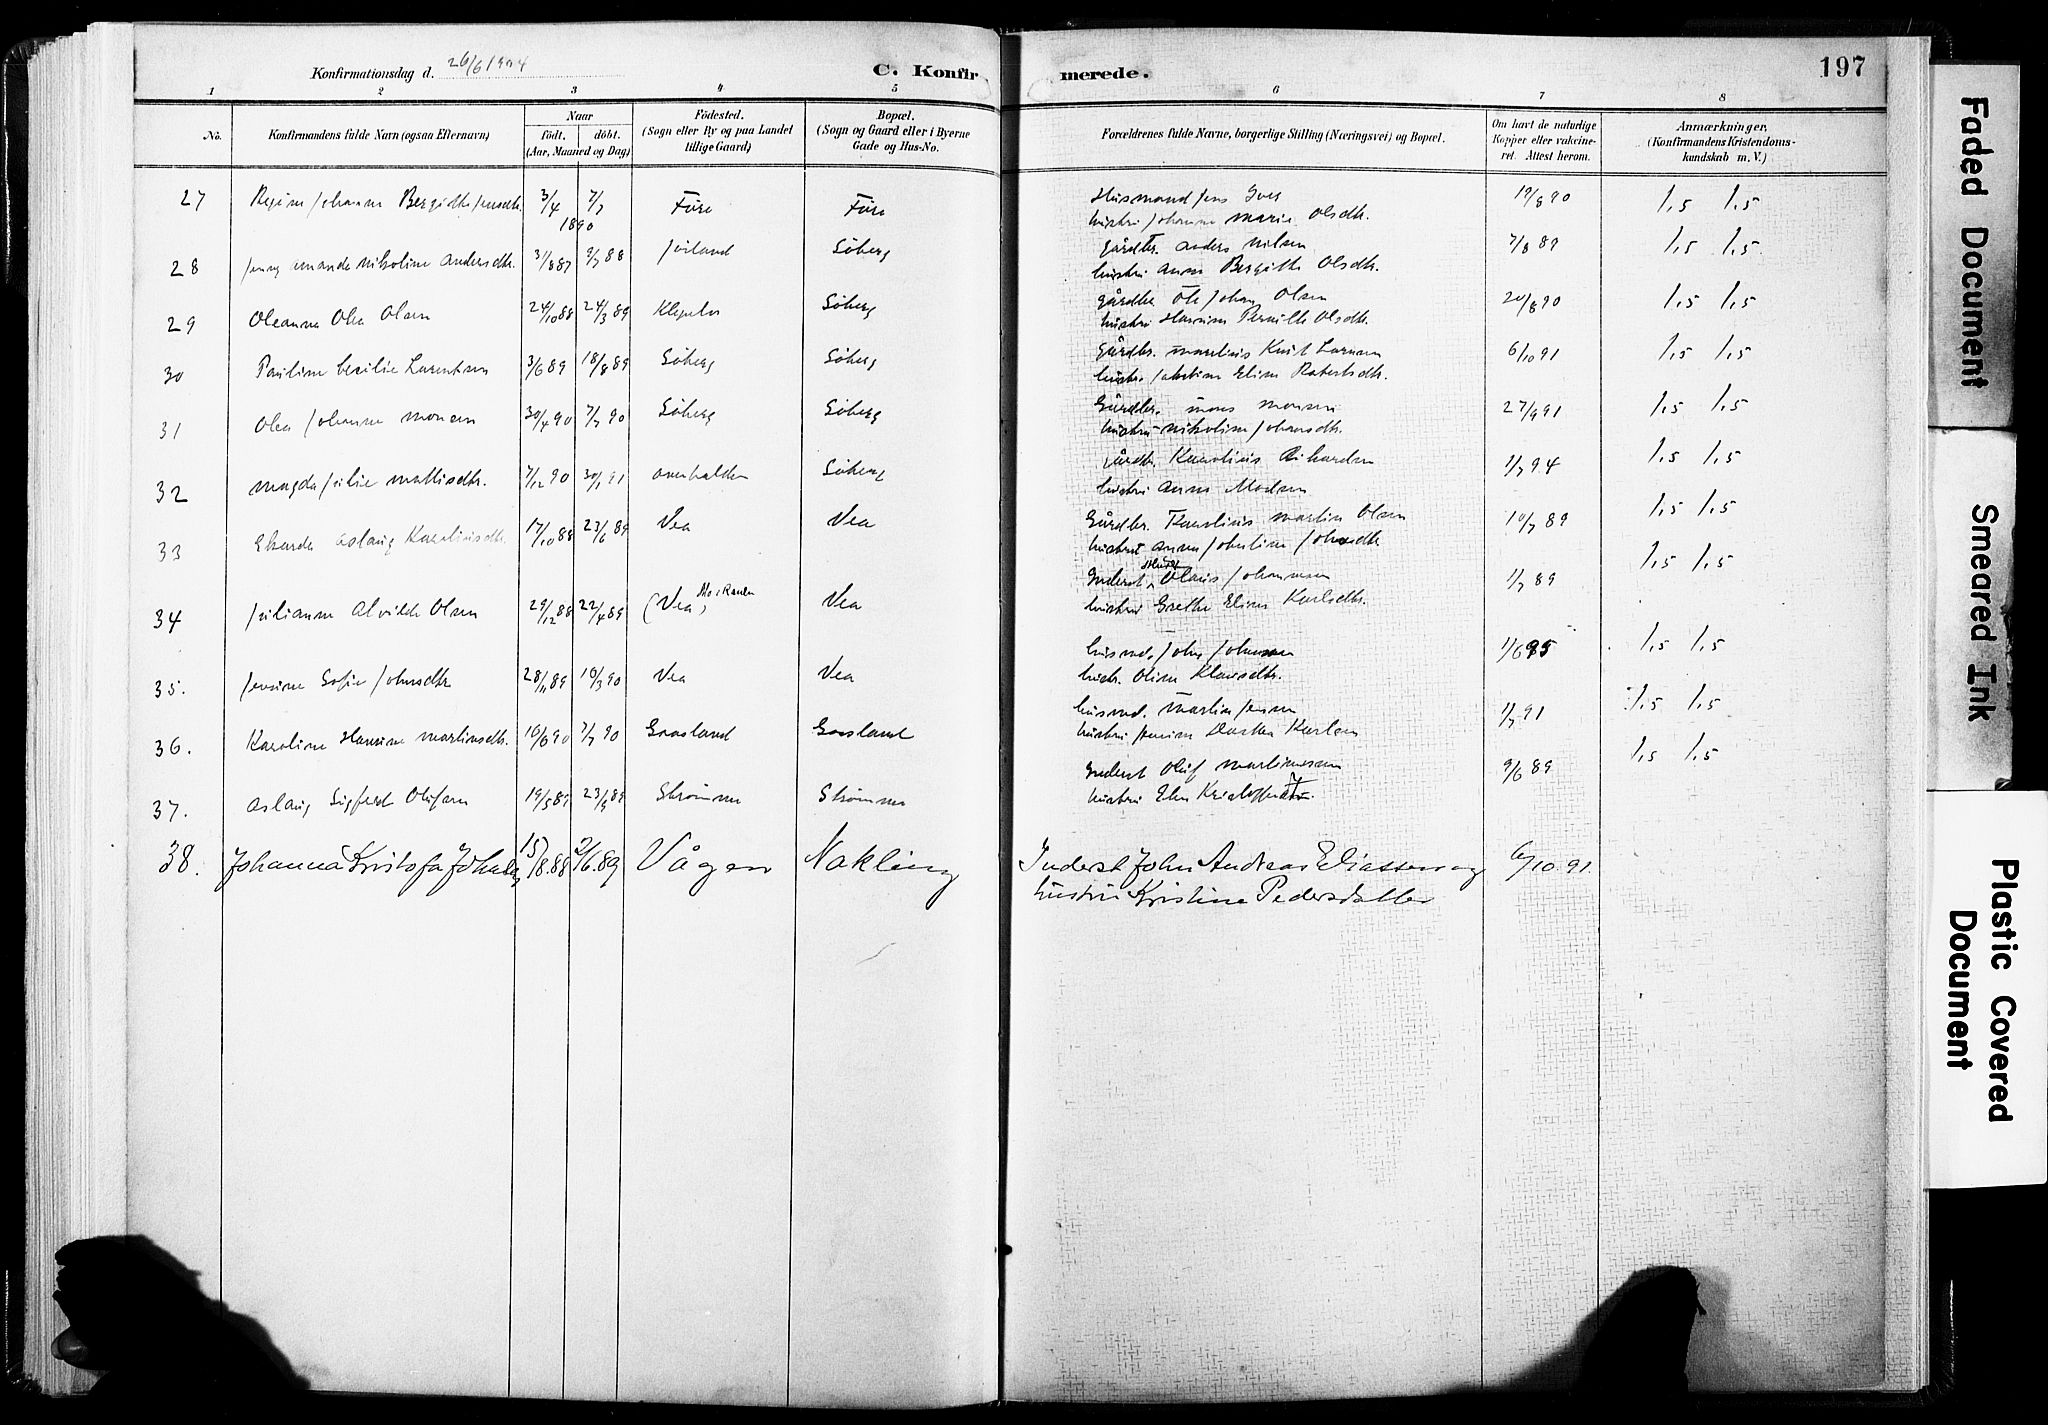 Konfirmationsdag d. 26/6 1904
C. Konfirmerede.
197
1 2 3 4 5 6 7 8
No.
Konfirmandens fulde Navn (ogsaa Efternavn)
Naar
født. døbt.
(Aar, Maaned og Dag)
Fødested.
(Sogn eller By og paa Landet
tillige Gaard)
Bopæl.
(Sogn og Gaard eller i Byerne
Gade og Hus-No.
Forældrenes fulde Navne, borgerlige Stilling (Næringsvei) og Bopæl.
Om havt de naturlige
Kopper eller vakcine-
ret. Attest herom.
Anmærkninger,
(Konfirmandens Kristendoms-
kundskab m. V.)
27 Johanne Bergitte 3/4 7/7 1890 Füre Füre Husmand Jens Iver 19/8 90 1,5 1,5
hustru Johanne Marie Olsdtr.
28 Jenny Amanda Nikoline Andersdtr. 31/8 87 88 Søberg gårdbr. Anders Nilsen 7/8 89 1,5 1,5
hustru Anna Bergitte Olsdtr.
29 Oleanna Olea Olsen 24/10 88 24/3 89 Søberg gårdbr. Ole Johan Olsen 20/8 90 1,5 1,5
hustru Pernille Olsdtr.
30 Pauline Cecilie Larentsen 3/6 89 18/8 89 Søberg Søberg Gårdbr. Martinus Knut 6/10 91 1,5 1,5
Elina Robertsdtr.
31 Olea Johanne Monsen 30/4 90 7/7 90 Søberg Søberg Gårdbr. Mons Monsen 27/9 91 1,5 1,5
hustru Nikoline Johansdtr.
32 Magda Julie Mathisdtr. 7/12 90 30/1 91 Overhalden Søberg gårdbr. Karolius Rikardsen 1/7 94 1,5 1,5
hustru Anna Madsen
33 Aslaug Karoliusdtr. 17/10 88 23/6 89 Vea Vea Gårdbr. Karolius Martin Olsen 10/7 89 1,5 1,5
hustru Anna
34 Julianna Alvilde Olsen 29/12 88 22/4 89 (Vea, Mo i Ranen Vea Inderst Olaus Johannesen 1/7 89 1,5 1,5
hustru Grethe Elina Karlsdtr.
35. Jensine Sofie Johnsdtr 28/11 89 10/3 90 Vea Vea husmd. John Johansen 1/6 95 1,5 1,5
hustr. Olina Klausdtr.
36. Karoline Hansine Martinsdtr. 7/7 90 Gaasland Gaasland husmd. Martin Jensen 1/7 91 1,5 1,5
hustru Jensine Dorthea Karlsen
37. Aslaug Sigfred Olufsen 23/9 89 Strømmen Strømmen Inderst Oluf Martinussen 9/6 89 1,5 1,5
hustru Elen
38. Johanna Kristofa 15/8. 88 2/6. 89 Vågen Nakling Inderst John Andreas Eliassen og 6/10. 91.
hustru Kristina Pedersdatter
Faded Document
Smeared Ink
Plastic Covered
Document